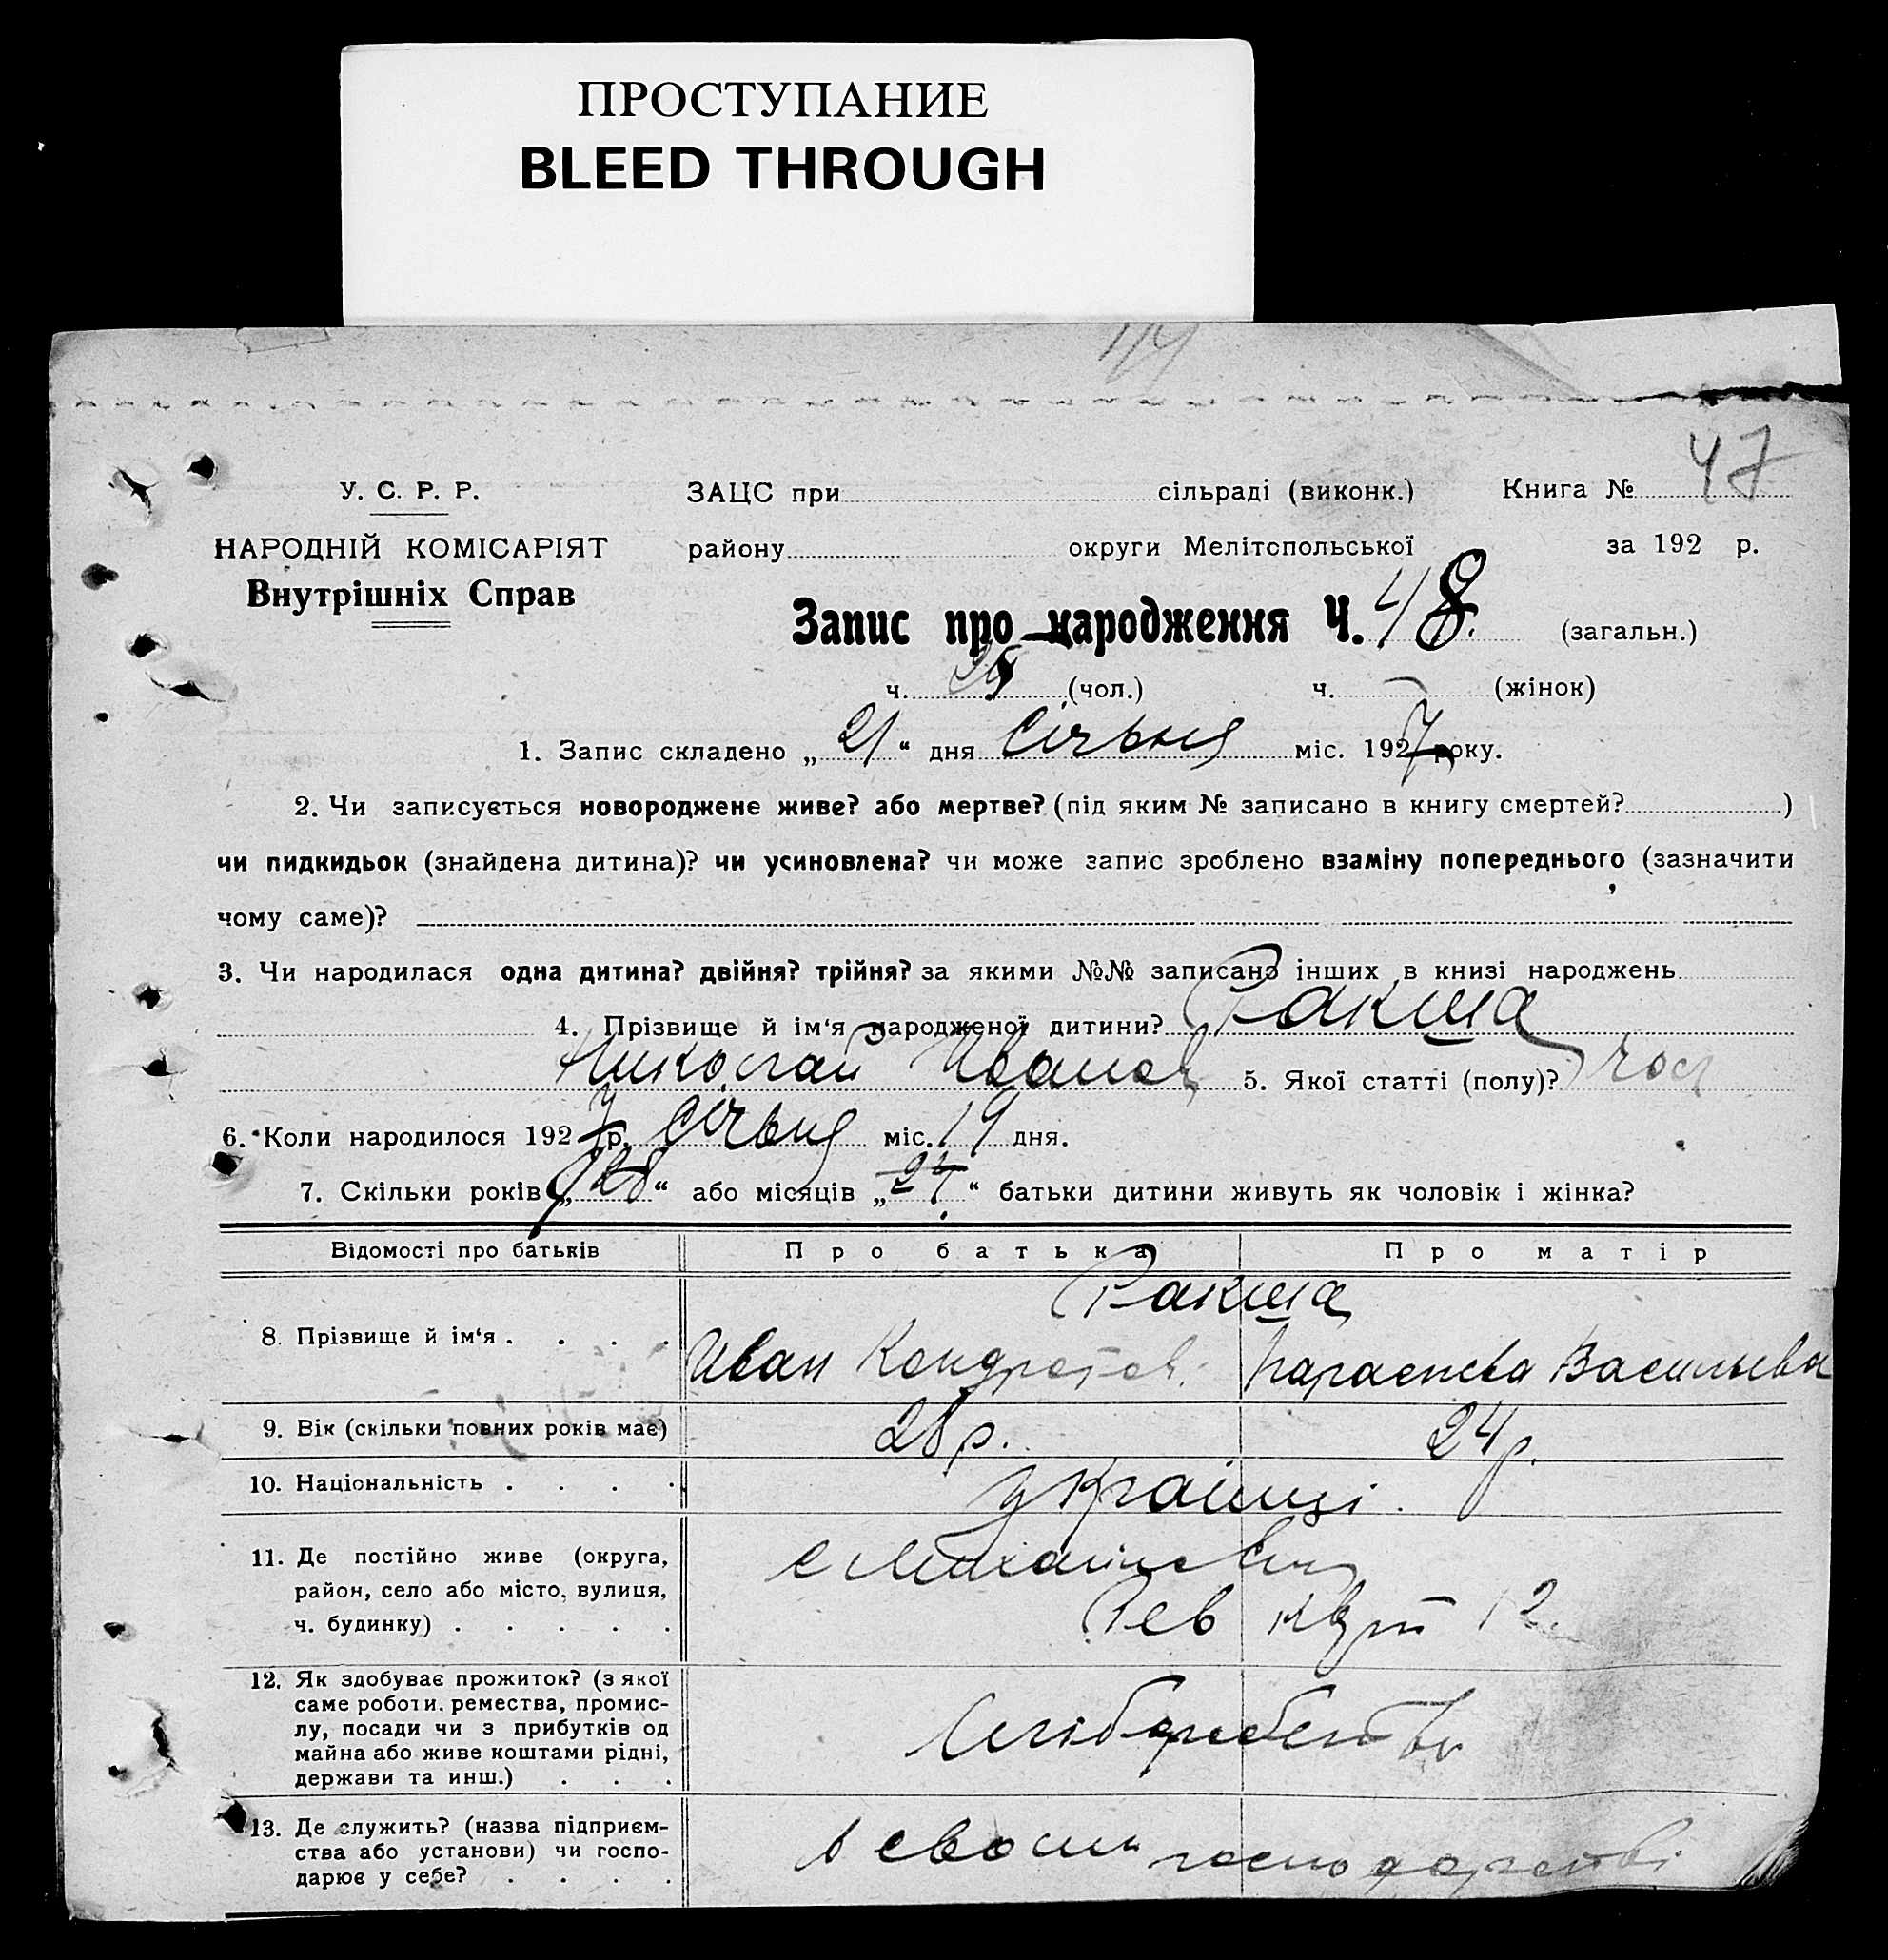 ПРОСТУПАНИЕ
BLEED THROUGH
47
У. С. Р. Р. ЗАЦС при сільраді (виконк.) Книга №
НАРОДНІЙ КОМІСАРІЯТ району округи Мелітопольської за 192 р.
Внутрішніх Справ
Запис про народження Ч. 48. (загальн.)
ч. (чол.) ч. — (жінок)
1. Запис складено „ 21 “ дня Січьня міс. 1927 року.
2. Чи записується новороджене живе? або мертве? (під яким № записано в книгу смертей? )
чи пидкидьок (знайдена дитина)? чи усиновлена? чи може запис зроблено взаміну попереднього (зазначити
чому саме)?
3. Чи народилася одна дитина? двійня? трійня? за якими №№ записано інших в книзі народжень
4. Прізвище й ім‘я народженої дитини? Ракша
Николай Иванов 5. Якої статті (полу)? чол
6. Коли народилося 1927 р. Січьня міс. 19 дня.
7. Скільки років „ “ або місяців „ “ батьки дитини живуть як чоловік і жінка?
Відомості про батьків Про батька Про матір
Ракша
8. Прізвище й ім‘я . . . . Иван Кондратов. Параскева Васильева
9. Вік (скільки повних років має) 28 р. 24 р.
10. Національність . . . . українці.
11. Де постійно живе (округа, с Михайлівка
район, село або місто, вулиця, Рев 12
ч. будинку) . . . . .
12. Як здобуває прожиток? (з якої
саме роботи, ремества, промис-
лу, посади чи з прибутків од Хліборобство
майна або живе коштами рідні,
держави та инш.) . . .
13. Де служить? (назва підприєм- в своим господарстві
ства або установи) чи госпо-
дарює у себе? . . . .